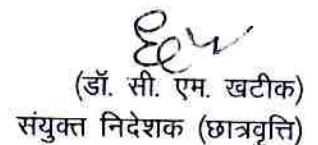 (डॉ. सी. एम. खटीक)
संयुक्त निदेशक (छात्रवृत्ति)